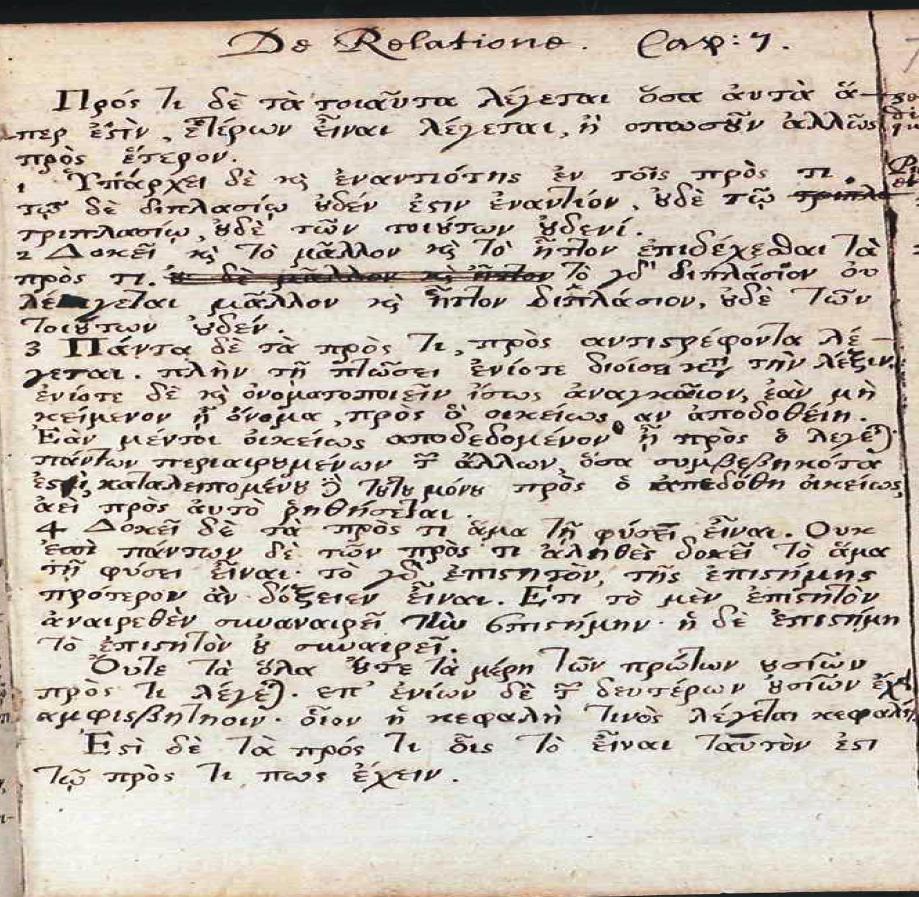 De Relatione. Cap: 7.
Πρός τι δὲ τὰ τοιαῦτα λέγεται ὅσα ἀυτὰ ἅ-
περ ἐστὶν, ἑτέρων εἶναι λέγεται, ἢ οπωσοῦν ἀλλῶς
πρὸς ἕτερον.
1 Ὑπάρχει δὲ κὶ ἐναντιότης ἐν τοῖς πρὸς τι.
τῷ δὲ διπλασίῳ ȣδεν ἐστιν ἐναντίον, ȣδὲ τῷ
τριπλασίῳ, ȣδὲ τῶν τοιȣτων ȣδενί.
2 Δοκεῖ κὶ τὸ μᾶλλον κὶ τὸ ἧττον ἐπιδέχεσθαι τὰ
πρὸς τι. τὸ γδ διπλάσιον ου
λέγεται μᾶλλον κὶ ἧττον διπλάσιον, ȣδὲ τῶν
τοιȣτων ȣδέν.
3 Πάντα δὲ τὰ πρὸς τι, πρὸς αντιστρέφοντα λέ-
γεται. πλὴν τῇ πτῶσει ἐνίοτε διοίσει κτ τὴν λέξιν.
ἐνίοτε δὲ κὶ ὀνοματοποιεῖν ἴσως ἀναγκαῖον, ἐὰν μὴ
κείμενον ᾖ ὄνομα, πρὸς ὃ οικείως αν ἀποδοθείη.
Ἐὰν μέντοι ὀικείως αποδεδομένον ᾖ πρὸς ὃ λεγέ)
πάντων περιαιρȣμένων τ ἄλλων, ὅσα συμβεβηκότα
ἐστι, καταλειπομένȣ δ τȣτȣ μόνȣ πρὸς ὃ ἀπεδόθη οικείως
αεὶ πρὸς ἀυτὸ ῥηθήσεται.
4 Δοκεῖ δὲ τὰ πρὸς τι ἅμα τῇ φύσει εἶναι. Ουκ
ἐπὶ πάντων δὲ τῶν πρὸς τι ἀληθὲς δοκεῖ τὸ ἅμα
τῇ φύσει εἶναι· τὸ γδ ἐπιστητὸν, τῆς ἐπιστήμης
πρότερον ἂν δόξειεν εἶναι. Ετι τὸ μὲν ἐπιστητὸν
ἀναιρεθὲν συναναιρεῖ τὴν ἐπιστήμην· ἡ δὲ ἐπιστήμη
τὸ ἐπιστητὸν ȣ συναιρεῖ.
Ὀυτε τὰ ὅλα ȣτε τὰ μέρη τῶν πρώτων ȣσιῶν
πρὸς τι λέγέ). επ' ἐνίων δὲ τ δευτέρων ȣσιῶν ἔχει
αμφισβήτησιν· ὅιον ἡ κεφαλὴ τινὸς λέγεται κεφαλή
Ἐστὶ δὲ τὰ πρός τι ὅις τὸ εἶναι ταὐτὸν ἐστι
τῷ πρὸς τι πως ἔχειν.